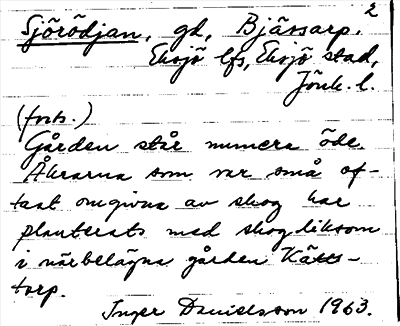 2
Sjörödjan, gd, Bjärsarp.
Eksjö lfs, Eksjö stad,
Jönk. l.
(forts.)
Gården står numera öde.
Åkrarna som var små of-
tast omgivna av skog har
planterats med skog liksom
i närbelägna gården Kätts-
torp.
Inger Danielsson 1963.